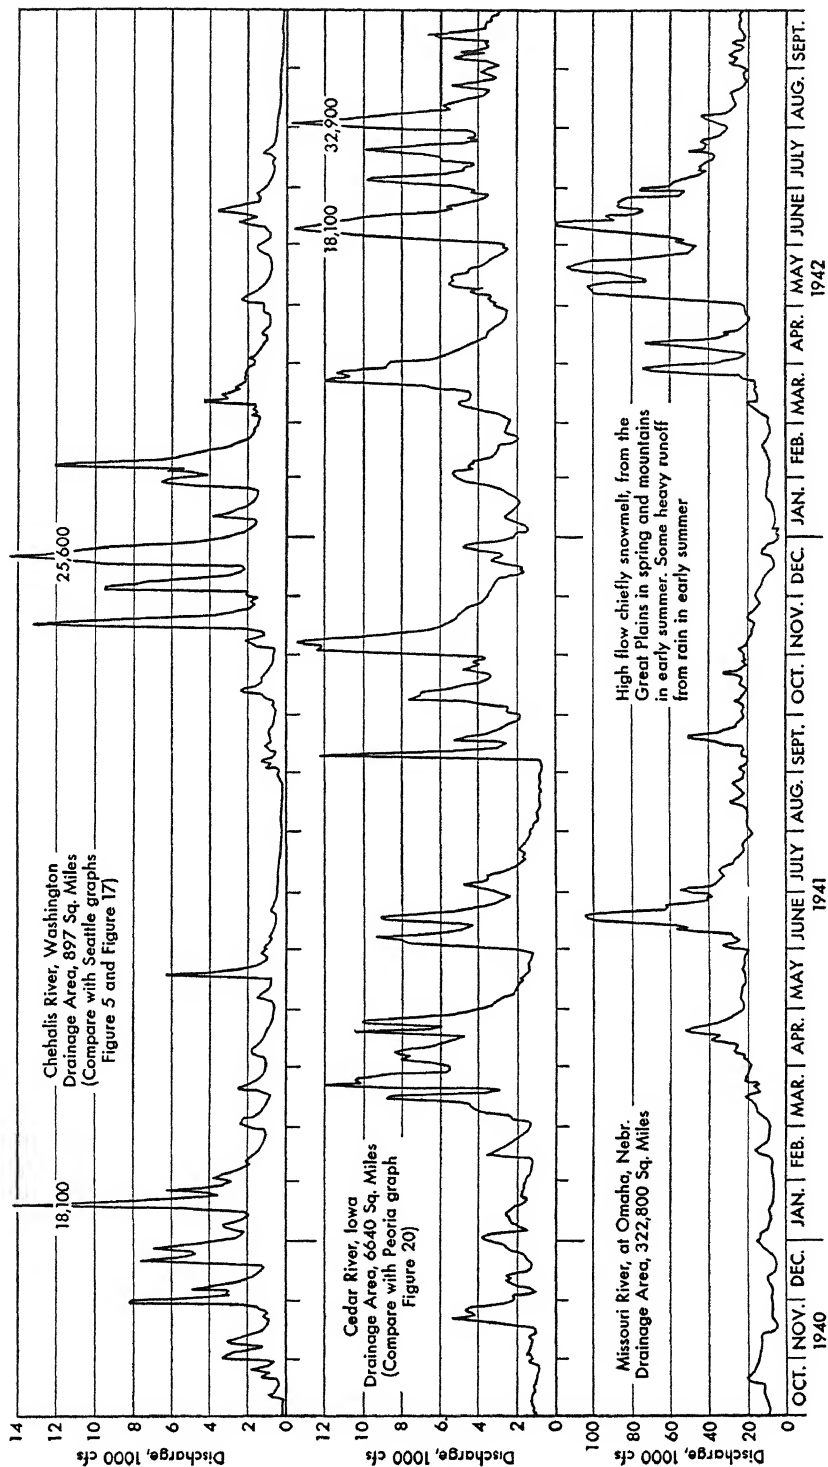 14
12
10
8
6
4
2
0
Discharge, 1000 cfs
18,100
25,600
Chehalis River, Washington
Drainage Area, 897 Sq. Miles
(Compare with Seattle graphs
Figure 5 and Figure 17)
12
10
8
6
4
2
Discharge, 1000 cfs
18,100
32,900
Cedar River, Iowa
Drainage Area, 6640 Sq. Miles
(Compare with Peoria graph
Figure 20)
100
80
60
40
20
0
Discharge, 1000 cfs
Missouri River, at Omaha, Nebr.
Drainage Area, 322,800 Sq. Miles
High flow chiefly snowmelt, from the
Great Plains in spring and mountains
in early summer. Some heavy runoff
from rain in early summer
OCT. | NOV. | DEC. | JAN. | FEB. | MAR. | APR. | MAY | JUNE | JULY | AUG. | SEPT. | OCT. | NOV. | DEC. | JAN. | FEB. | MAR. | APR. | MAY | JUNE | JULY | AUG. | SEPT.
1940 1941 1942